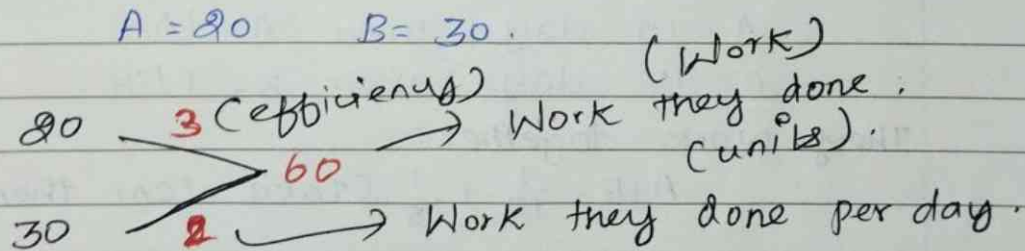 A = 20 B = 30.
(Work)
20 3 (efficiency) → Work they done.
60 (units).
30 2 → Work they done per day.